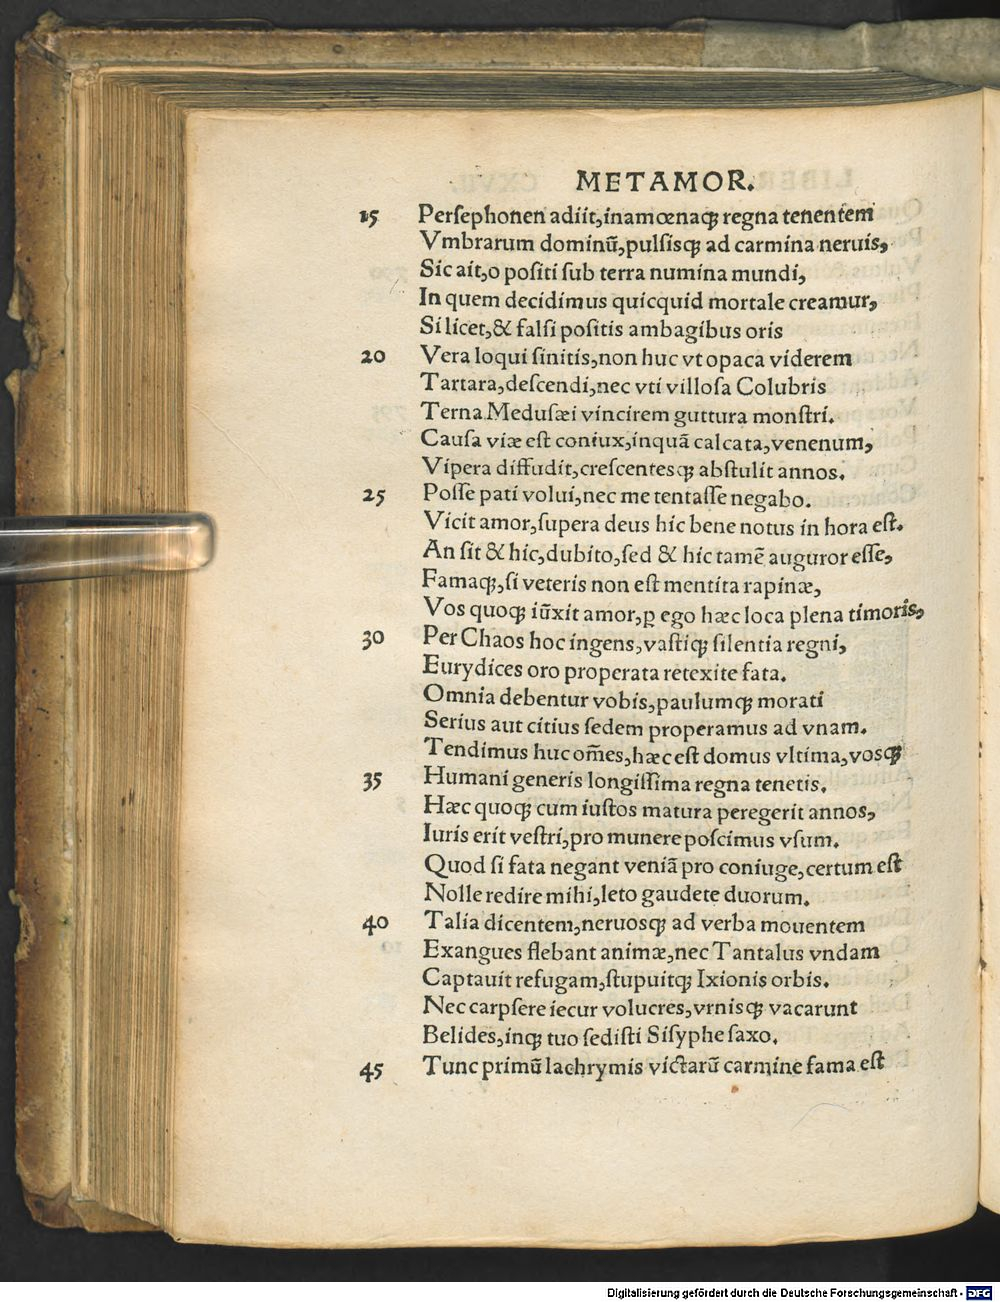 METAMOR.
15 Perſephonen adiit,inamœnaqꝫ regna tenentem
Vmbrarum dominū,pulſisqꝫ ad carmina neruis,
Sic ait,o poſiti ſub terra numina mundi,
In quem decidimus quicquid mortale creamur,
Si licet,& falſi poſitis ambagibus oris
20 Vera loqui ſinitis,non huc vt opaca viderem
Tartara,deſcendi,nec vti villoſa Colubris
Terna Meduſæi vincirem guttura monſtri.
Cauſa viæ eſt coniux,inquā calcata,venenum,
Vipera diffudit,creſcentesqꝫ abſtulit annos.
25 Poſſe pati volui,nec me tentaſſe negabo.
Vicit amor,ſupera deus hic bene notus in hora eſt.
An ſit & hic,dubito,ſed & hic tamē auguror eſſe,
Famaqꝫ,ſi veteris non eſt mentita rapinæ,
Vos quoqꝫ iūxit amor,ꝑ ego hæc loca plena timoris,
30 Per Chaos hoc ingens,vaſtiqꝫ ſilentia regni,
Eurydices oro properata retexite fata.
Omnia debentur vobis,paulumqꝫ morati
Serius aut citius ſedem properamus ad vnam.
Tendimus huc om̄es,hæc eſt domus vltima,vosqꝫ
35 Humani generis longiſſima regna tenetis.
Hæc quoqꝫ cum iuſtos matura peregerit annos,
Iuris erit veſtri,pro munere poſcimus vſum.
Quod ſi fata negant veniā pro coniuge,certum eſt
Nolle redire mihi,leto gaudete duorum.
40 Talia dicentem,neruosqꝫ ad verba mouentem
Exangues flebant animæ,nec Tantalus vndam
Captauit refugam,ſtupuitqꝫ Ixionis orbis.
Nec carpſere iecur volucres,vrnisqꝫ vacarunt
Belides,inqꝫ tuo ſediſti Siſyphe ſaxo.
45 Tunc primū lachrymis victarū carmine fama eſt
Digitalisierung gefördert durch die Deutsche Forschungsgemeinschaft - DFG